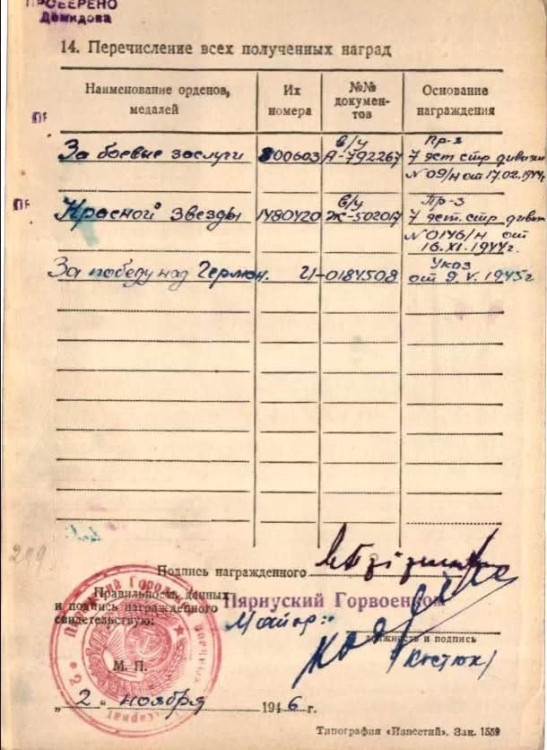 ПРОВЕРЕНО
Демидова
14. Перечисление всех полученных наград
Наименование орденов, медалей
Их номера
№№ документов
Основание награждения
ПГ
За боевые заслуги 800603 в/у А-792267 Пр-з 7 эст стр дивизии
N 09/н от 17.02.1944
ПГ
Красной Звезды 1480420 в/у Ж-502017 Пр-з 7 эст. стр. дивиз
N 0146/н от
16.XI.1944г.
За победу над Герман. И-0184508 Указ
от 9.V.1945г
Подпись награжденного
Правильность данных
и подпись награжденного
свидетельствую:
Пярнуский Горвоенком
Майор:
должность и подпись
/Костюк/
М. П.
„ 2 “ ноября 1946 г.
Типография «Известий». Зак. 1559